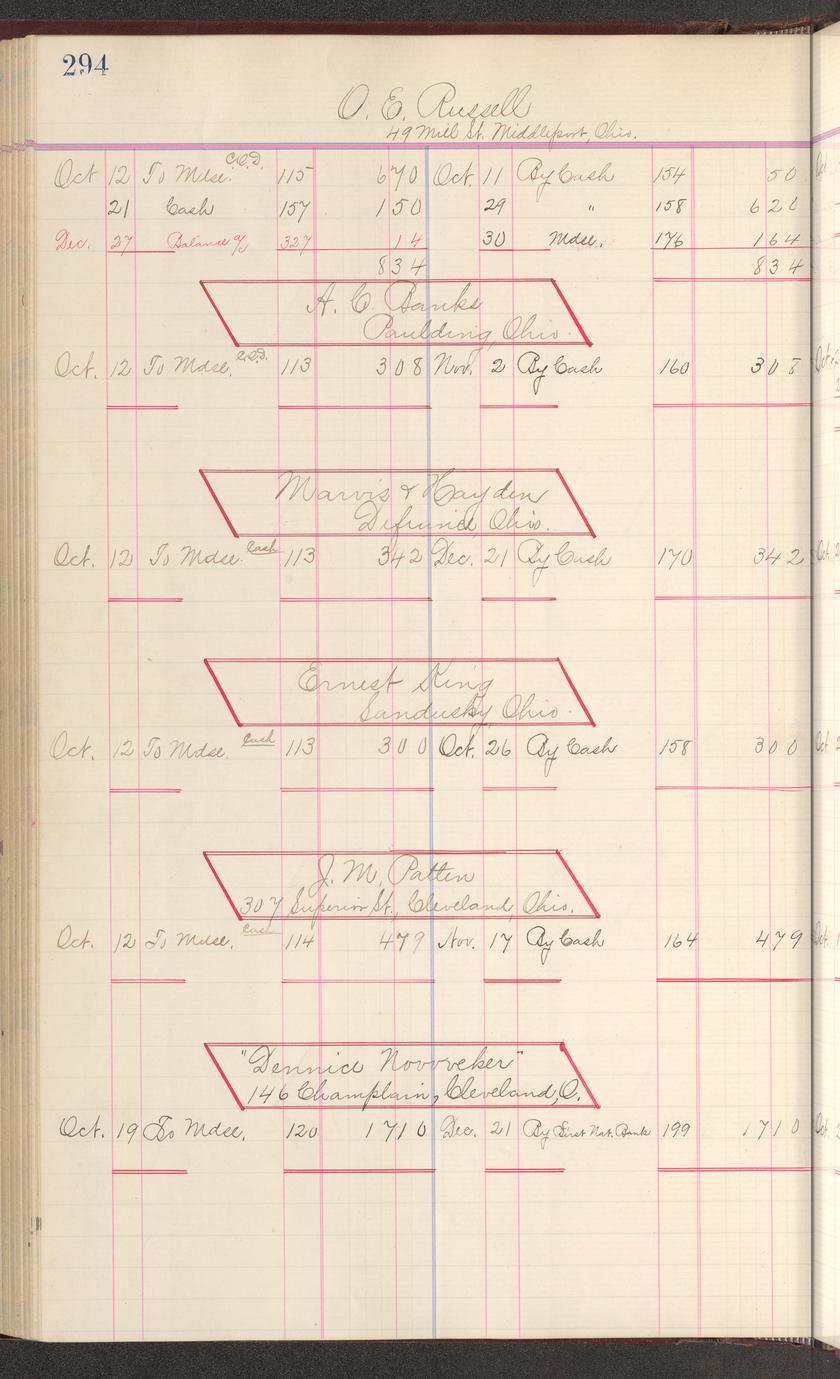 294
O. E. Russell
49 Mill St. Middleport, Ohio.
Oct 12 To Mdse. C.O.D. 115 6 70 Oct. 11 By Cash 154 50
21 Cash 157 1 50 29 " 158 6 20
Dec. 27 Balance a/c 327 14 30 Mdse. 176 1 64
8 34 8 34
A. C. Banks
Paulding, Ohio.
Oct. 12 To Mdse. C.O.D. 113 3 08 Nov. 2 By Cash 160 3 08
Marvis & Hayden
Ohio.
Oct. 12 To Mdse. Cash 113 3 42 Dec. 21 By Cash 170 3 42
Ernest King
Sandusky, Ohio.
Oct. 12 To Mdse. Cash 113 3 00 Oct. 26 By Cash 158 3 00
J. M. Patten
307 Superior St., Cleveland, Ohio.
Oct. 12 To Mdse. Cash 114 4 79 Nov. 17 By Cash 164 4 79
"Dennice
146 Champlain, Cleveland, O.
Oct. 19 To Mdse. 120 17 10 Dec. 21 By First Nat. Bank 199 17 10